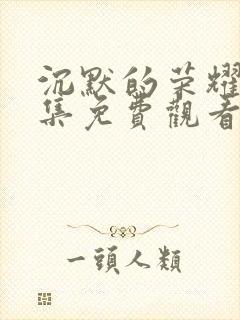 沉默的荣耀
集免費觀看
一頭人類